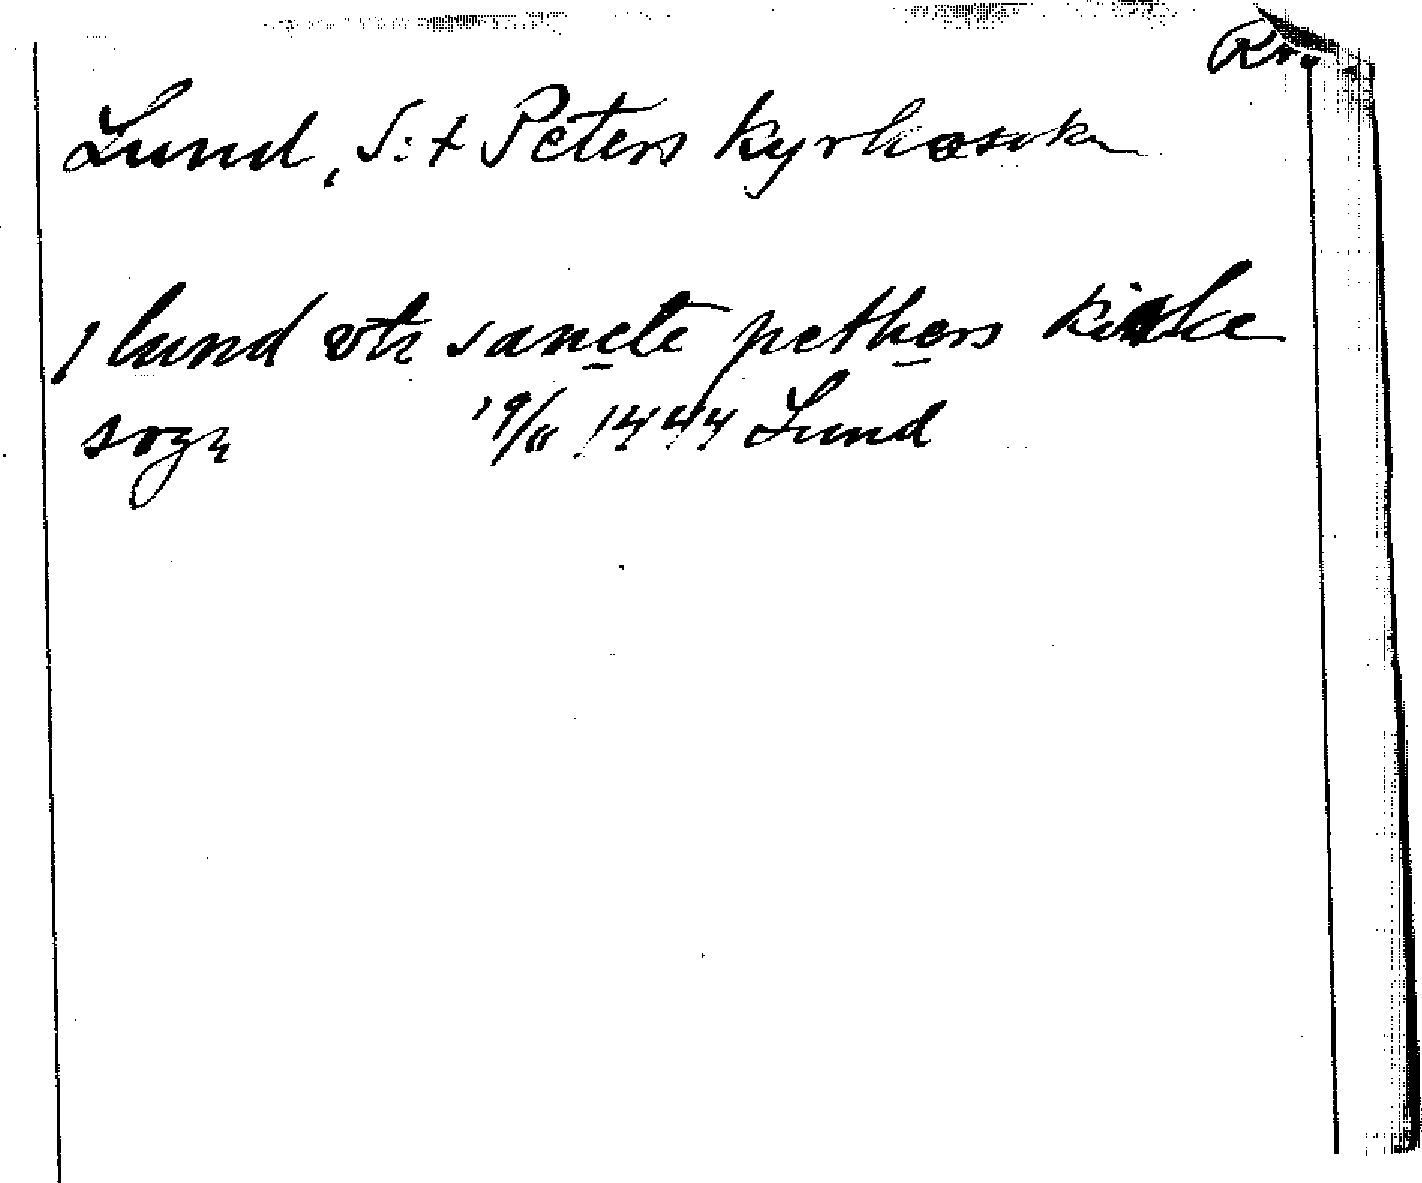 Lund, S:t Peters kyrkosokn
J lund vti sancte pethers kirke
sogn 19/11 1444 Lund